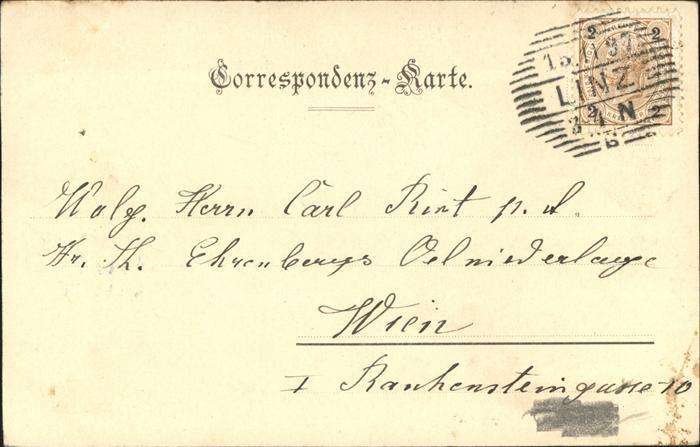 Correspondenz-Karte.
2 2
LINZ
2 2
Wolg. Herrn Carl Rint p. A.
Fr. Th. Ehrenbergs Oelniederlage
Wien
I Rauhensteingasse 10